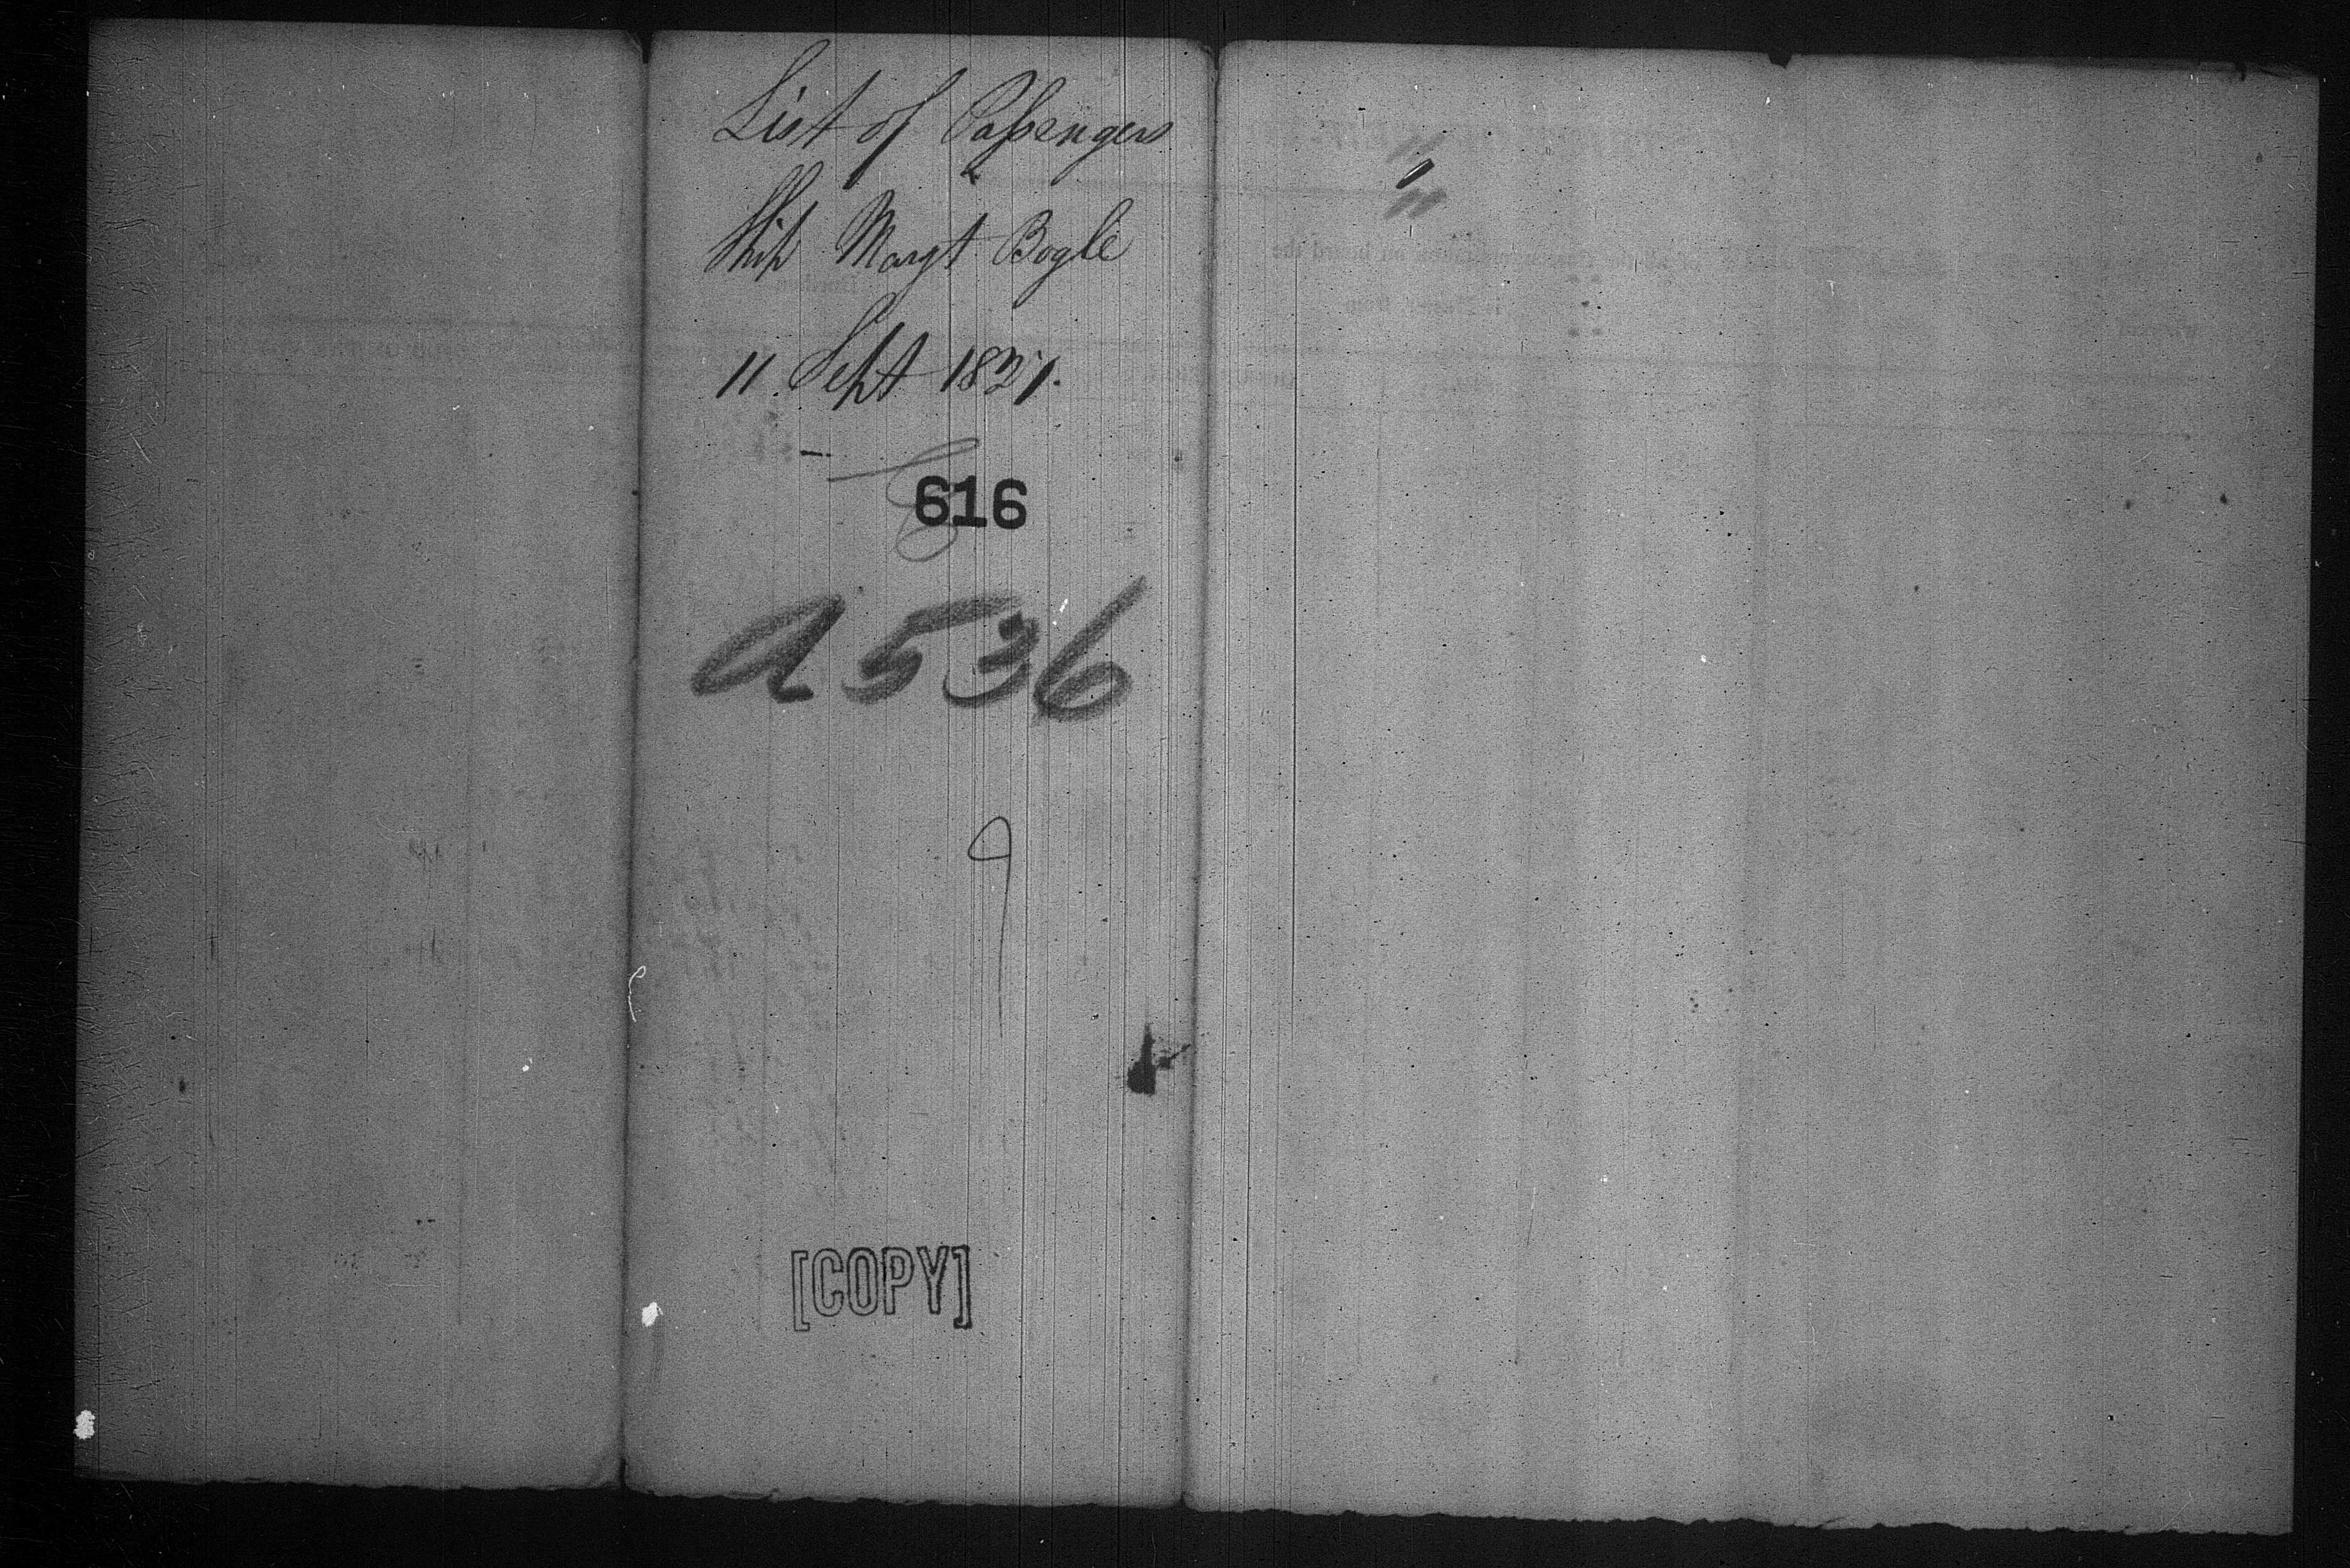 List of Passengers
Ship Margt Bogle
11 Sept 1827.
616
A536
9
[COPY]